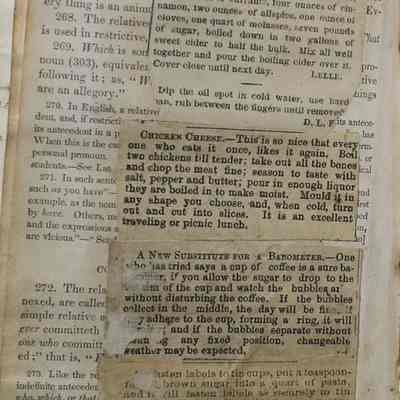 ery thing is anim
268. The relative
is used in restrictive,
269. Which is som
noun (303), equivale
following it; as, "W
are an allegory."
270. In English, a relative
dent, and, if restricti
its antecedent is a p
When this is the ca
personal pronoun.
students.—See Lat.
271. In such sente
such as you have"—
example, as the nom
by here. Others, m
and the expressions a
are vicious."—See
272. The rela
nexed, are calle
simple relative
er committeth
one who commit
ed;" that is, "
273. Like the re
indefinite anteceden
who, which, or that
namon, two ounces of allspice, one ounce of
cloves, one quart of molasses, seven pounds
of sugar, boiled down in two gallons of
sweet cider to half the bulk. Mix all well
together and pour the boiling cider over it.
Cover close until next day. LULLE.
Dip the oil spot in cold water, use hard
rub between the fingers until removed
D. L. F.
its antece-
CHICKEN CHEESE.—This is so nice that every
one who eats it once, likes it again. Boil
two chickens till tender; take out all the bones
and chop the meat fine; season to taste with
salt, pepper and butter; pour in enough liquor
they are boiled in to make moist. Mould it in
any shape you choose, and, when cold, turn
out and cut into slices. It is an excellent
traveling or picnic lunch.
A NEW SUBSTITUTE FOR A BAROMETER.—One
who has tried says a cup of coffee is a sure ba-
if you allow the sugar to drop to the
of the cup and watch the bubbles
without disturbing the coffee. If the bubbles
collect in the middle, the day will be
adhere to the cup, forming a ring, it will
and if the bubbles separate without
any fixed position, changeable
weather may be expected.
fasten labels to tin cups, put a teaspoon-
brown sugar into a quart of paste,
and it will fasten labels as securely to tin